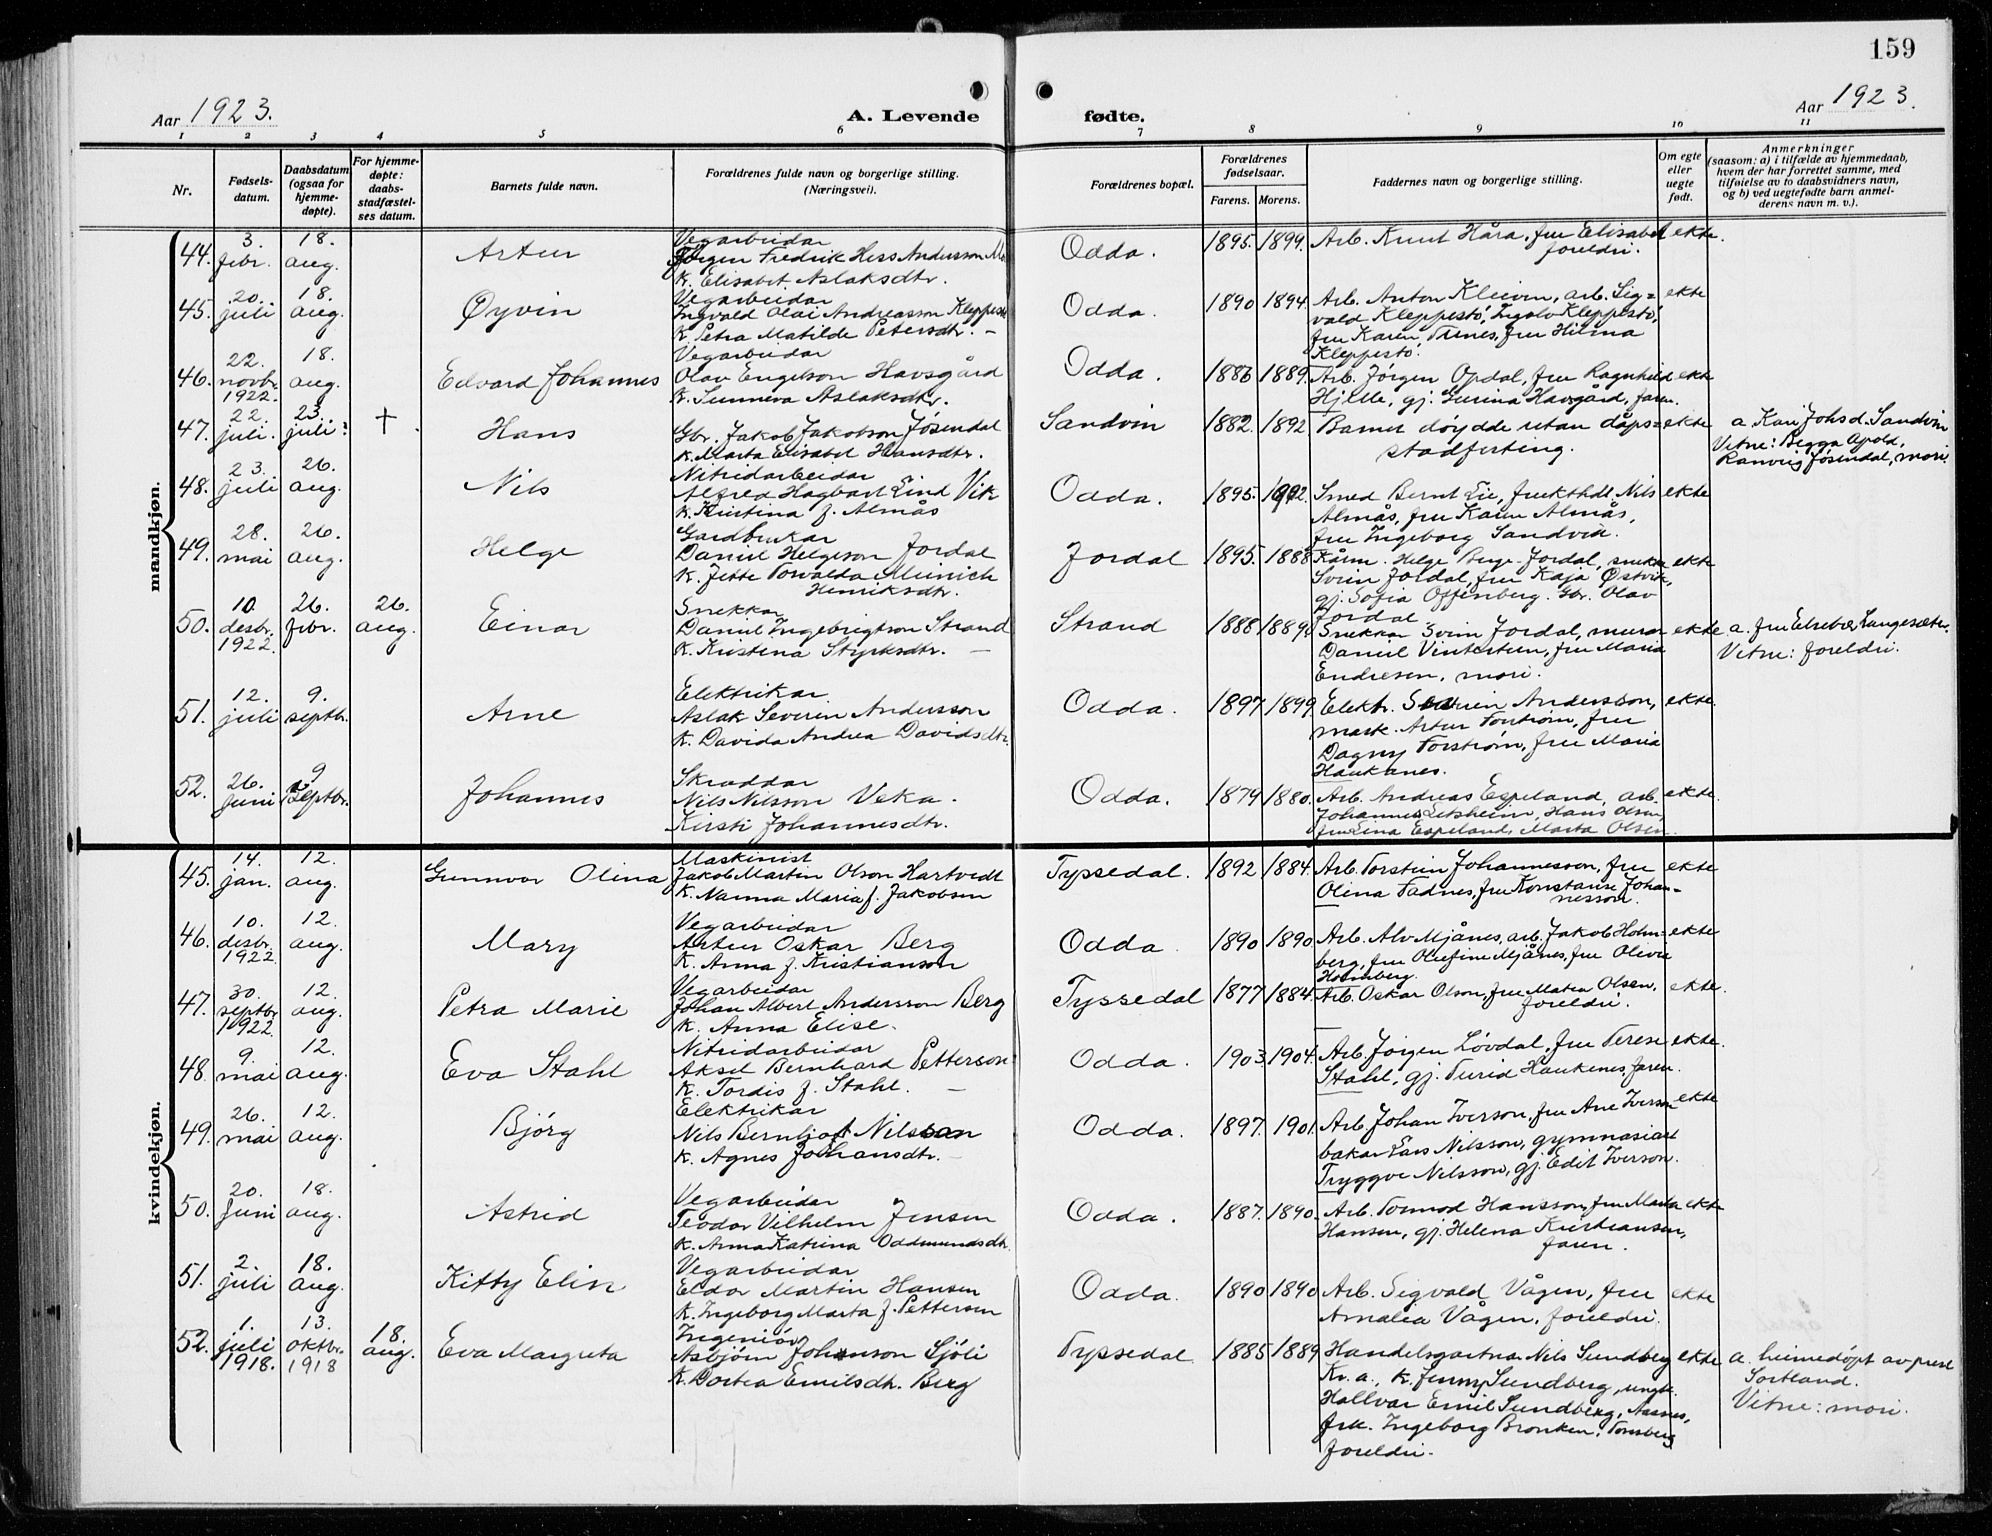 159
Aar 1923.
A. Levende
fødte.
Aar 1923.
1 2 3 4 5 6 7 8 9 10 11
Nr.
Fødsels-
datum.
Daabsdatum
(ogsaa for
hjemme-
døpte).
For hjemme-
døpte:
daabs-
stadfæstel-
ses datum.
Barnets fulde navn.
Forældrenes fulde navn og borgerlige stilling.
(Næringsvei).
Forældrenes bopæl.
Forældrenes
fødselsaar.
Farens. Morens.
Faddernes navn og borgerlige stilling.
Om egte
eller
uegte
født.
Anmerkninger
(saasom: a) i tilfælde av hjemmedaab,
hvem der har forrettet samme, med
tilføielse av to daabsvidners navn,
og b) ved uegtefødte barn anmel-
derens navn m. v.).
mandkjøn.
44. 3. febr. 18. aug. Artur
Vegarbeidar
Jørgen Fredrik Hess Andersson
K. Elisabet Aslaksdtr.
Odda. 1895. 1899. Arb. Knut Håra, fru Elisabet
foreldri. ekte.
45. 20. juli 18. aug. Øyvin
Vegarbeidar
Ingvald Olai Andreasson Kleppestø
K. Petra Matilde Petersdtr. —
Odda. 1890 1894. Arb. Anton Kleiven, arb. Sig=
vald Kleppestø, Ingolv Kleppestø,
fru Karen Trines, fru Hilma
Kleppestø. ekte
46. 22. novbr. 1922. 18. aug. Edvard Johannes
Vegarbeidar
Olav Engelson Havsgård
K. Sunneva Aslaksdtr.
Odda. 1886 1889. Arb. Jørgen Opdal, fru Ragnhild
Hjelle, gj. Gurina Havsgård, faren. ekte
47. 22. juli. 23. juli. † Hans
Gbr. Jakob Jakobson Jøsendal
K. Marta Elisabet Hansdtr.
Sandvin 1882. 1892 Barnet døydde utan dåps=
stadfesting. ekte
a. Kari Johsd. Sandvin
Vitne: Begga Apold,
Ranveig Jøsendal, mori.
48. 23. juli 26. aug. Nils
Nitridarbeidar
Alfred Hagbart Eind Vik
K. Kristina f. Almås
Odda. 1895. 1892. Smed Bernt Lie, frukthdl. Nils
Almås, fru Karen Almås,
fru Ingeborg Sandvik. ekte
49. 28. mai 26. aug. Helge
Gardbrukar
Daniel Helgeson Jordal
K. Jette Torvalda Meinich
Henriksdtr.
Jordal 1895. 1888 Kårm. Helge Berge Jordal, snekkar
Svein Jordal, fru Kaja Østvik,
gj. Sofia Offenberg. Gbr. Olav
Jordal ekte
50. 10. desbr. 1922. 26. febr. 26. aug. Einar
Snekkar
Daniel Ingebrigtson Strand
K. Kristina Styrksdtr. —
Strand 1888 1889. Snekkar Svein Jordal, murar
Daniel Vintertun, fru Maria
Endresen, mori. ekte
a. fru Elsebe Langesæter.
Vitne: foreldri.
51. 12. juli 9. septbr. Arne
Elektrikar
Aslak Severin Andersson
K. Davida Andrea Davidsdtr.
Odda. 1897. 1899. Elektr. Severin Andersson,
mask. Artur Torstrøm, fru
Dagny Torstrøm, fru Maria
Haukanes. ekte.
52. 26. Juni 9. Septbr. Johannes
Skræddar
Nils Nilsson Veka.
Kirsti Johannesdtr.
Odda. 1879 1880. Arb. Andreas Espeland, arb.
Johannes Eitsheim, Hans Olsen,
fru Lina Espeland, Marta Olsen. ekte.
kvindekjøn.
45. 14. jan. 12. aug. Gunnvor Olina
Maskinist
Jakob Martin Olson Hartvedt
K. Nanna Maria f. Jakobsen
Tyssedal. 1892 1884. Arb. Torstein Johannesson, fru
Olina Tadnes, fru Konstanse Johan-
nesson. ekte
46. 10. desbr. 1922. 12. aug. Mary
Vegarbeidar
Artur Oskar Berg
K. Anna f. Kristianson
Odda. 1890 1890 Arb. Alv Mjånes, arb. Jakob Holm-
berg, fru Olufine Mjånes, fru Olivia
Holmberg. ekte
47. 30. septbr. 1922. 12. aug. Petra Marie
Vegarbeidar
Johan Albert Andersson Berg
K. Anna Elise.
Tyssedal 1877 1884. Arb. Oskar Olson, fru Maten Olsen,
foreldri. ekte.
48. 9. mai 12. aug. Eva Stahl
Nitridarbeidar
Aksel Bernhard Petterson
K. Tordis f. Stahl. —
Odda. 1903. 1904. Arb. Jørgen Løvdal, fru Terese
Stahl, gj. Turid Haukenes, faren. ekte.
49. 26. mai 12. aug. Bjørg
Elektrikar
Nils Bernhof Nilsson
K. Agnes Johansdtr. —
Odda. 1897. 1901. Arb. Johan Iverson, fru Ane Iverson
bakar Lars Nilsson, gymnasiast
Tryggve Nilsson, gj. Edit Iverson. ekte
50. 20. Juni 18. aug. Astrid
Vegarbeider
Teodor Vilhelm Jensen
K. Anna Katrina Oddmundsdtr.
Odda. 1887. 1890. Arb. Tormod Hansson, fru Marta
Hansen, gj. Helena Kristiansen,
faren. ekte
51. 2. juli 18. aug. Kitty Elin
Vegarbeidar
Eldor Martin Hansen
K. Ingeborg Marta f. Pettersen
Odda. 1890 1890 Arb. Sigvald Vågen, fru
Amalia Vågen, foreldri. ekte
52. 1. juli 1918. 13. oktbr. 1918 18. aug. Eva Margreta
Ingeniør
Asbjørn Johanson Sjøli
K. Dortea Emilsdtr. Berg
Tyssedal 1885 1889 Handelsgartnar Nils Sundberg
Kr.a., K. Jenny Sundberg, ungk.
Hallvar Emil Sundberg, Aasnes,
frk. Ingeborg Bronken, Tønsberg
foreldri. ekte
a. heimedøpt av prest
Sortland.
Vitne: mori.